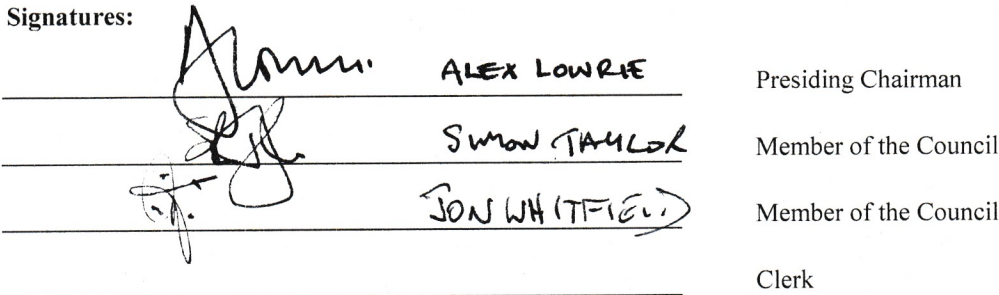 Signatures:
ALEX LOWRIE Presiding Chairman
SIMON TAYLOR Member of the Council
JON WHITFIELD Member of the Council
Clerk